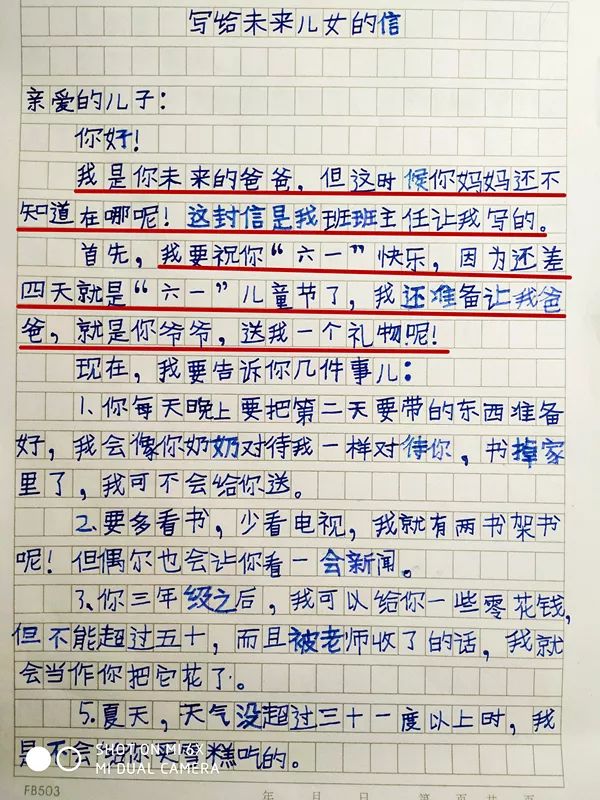 写给未来儿女的信
亲爱的儿子：
你好！
我是你未来的爸爸，但这时候你妈妈还不
知道在哪呢！这封信是我班班主任让我写的。
首先，我要祝你“六一”快乐，因为还差
四天就是“六一”儿童节了，我还准备让我爸
爸，就是你爷爷，送我一个礼物呢！
现在，我要告诉你几件事儿：
1、你每天晚上要把第二天要带的东西准备
好，我会像你奶奶对待我一样对待你，书掉家
里了，我可不会给你送。
2.要多看书，少看电视，我就有两书架书
呢！但偶尔也会让你看一会新闻。
3、你三年级之后，我可以给你一些零花钱，
但不能超过五十，而且被老师收了的话，我就
会当作你把它花了。
5.夏天，天气没超过三十一度以上时，我
是不会给你买雪糕吃的。
SHOT ON MI 6X
MI DUAL CAMERA
FB503
年 月 日 第 页 共 页